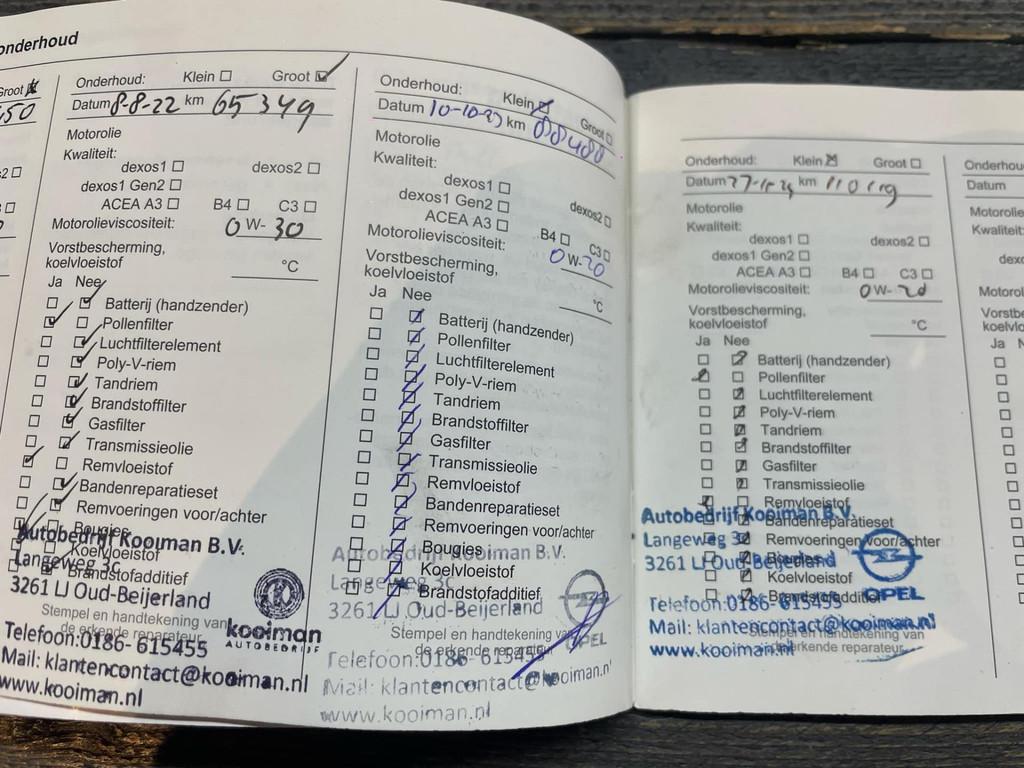 onderhoud
Groot
Onderhoud: Klein Groot
Datum 8-8-22 km 65349
Motorolie
Kwaliteit:
dexos1 dexos2
dexos1 Gen2
ACEA A3 B4 C3
Motorolieviscositeit: 0 W- 30
Vorstbescherming,
koelvloeistof °C
Ja Nee
Batterij (handzender)
Pollenfilter
Luchtfilterelement
Poly-V-riem
Tandriem
Brandstoffilter
Gasfilter
Transmissieolie
Remvloeistof
Bandenreparatieset
Remvoeringen voor/achter
Bougies
Koelvloeistof
Brandstofadditief
Autobedrijf Kooiman B.V.
Langeweg 3c
3261 LJ Oud-Beijerland
Stempel en handtekening van
de erkende reparateur
kooiman
AUTOBEDRIJF
Telefoon:0186- 615455
Mail: klantencontact@kooiman.nl
www.kooiman.nl
Onderhoud: Klein Groot
Datum 10-10-23 km 88480
Motorolie
Kwaliteit:
dexos1 dexos2
dexos1 Gen2
ACEA A3 B4 C3
Motorolieviscositeit: 0 W-20
Vorstbescherming,
koelvloeistof °C
Ja Nee
Batterij (handzender)
Pollenfilter
Luchtfilterelement
Poly-V-riem
Tandriem
Brandstoffilter
Gasfilter
Transmissieolie
Remvloeistof
Bandenreparatieset
Remvoeringen voor/achter
Bougies
Koelvloeistof
Brandstofadditief
Autobedrijf Kooiman B.V.
Langeweg 3c
3261 LJ Oud-Beijerland
OPEL
Stempel en handtekening van
de erkende reparateur
Telefoon:0186- 615455
Mail: klantencontact@kooiman.nl
www.kooiman.nl
Onderhoud: Klein Groot
Datum km 110119
Motorolie
Kwaliteit:
dexos1 dexos2
dexos1 Gen2
ACEA A3 B4 C3
Motorolieviscositeit: 0 W- 20
Vorstbescherming,
koelvloeistof °C
Ja Nee
Batterij (handzender)
Pollenfilter
Luchtfilterelement
Poly-V-riem
Tandriem
Brandstoffilter
Gasfilter
Transmissieolie
Remvloeistof
Bandenreparatieset
Remvoeringen voor/achter
Bougies
Koelvloeistof
Brandstofadditief
Autobedrijf Kooiman B.V.
Langeweg 3c
3261 LJ Oud-Beijerland
OPEL
Telefoon:0186- 615455
Mail: klantencontact@kooiman.nl
Stempel en handtekening van
de erkende reparateur
www.kooiman.nl
Datum
Ja